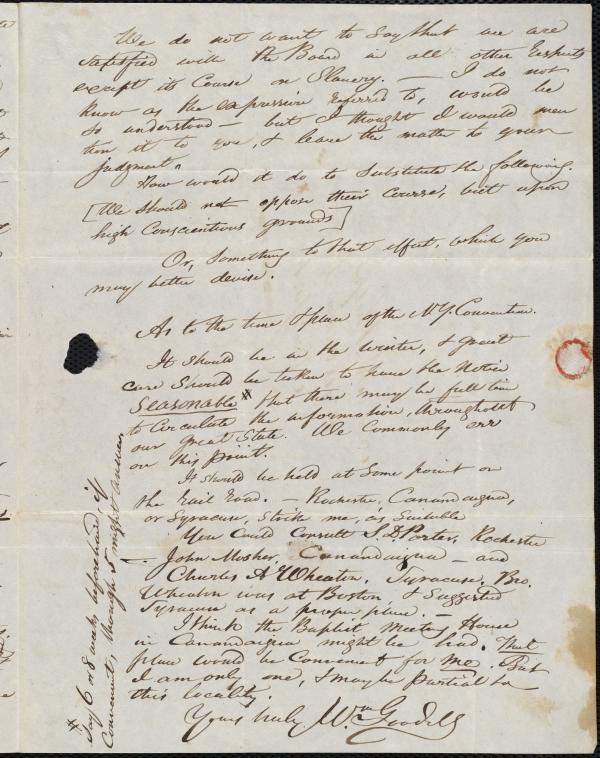 We do not want to say that we are
satisfied with the Board in all other respects
except its Course on Slavery. — I do not
know as the expression referred to, would be
so understood — but I thought I would men
tion it to you, & leave the matter to your
judgment."
How would it do to substitute the following.
[We should not oppose their course, but upon
high Conscientious grounds]
Or, Something to that effect, which you
may better devise.
As to the time & place of the N.Y. Convention.
It should be in the winter, & great
care should be taken to have the Notice
Seasonable * that there may be full time
to Circulate the information, throughout
our great State. We Commonly err
on this point.
It should be held at Some point on
the Rail Road. — Rochester, Canandaigua,
or Syracuse, Strike me, as, Suitable
You Could Consult S. D. Porter, Rochester
— John Mosher, Canandaigua — and
Charles A Wheaton, Syracuse, Bro.
Wheaton was at Boston & Suggested
Syracuse as a proper place. —
I think the Baptist Meeting House
in Canandaigua might be had. That
place would be Convenient for me. But
I am only one, & may be partial to
this locality.
Yours truly Wm Goodell
* Say 6 or 8 weeks beforehand, if
Convenient, though 5 might answer